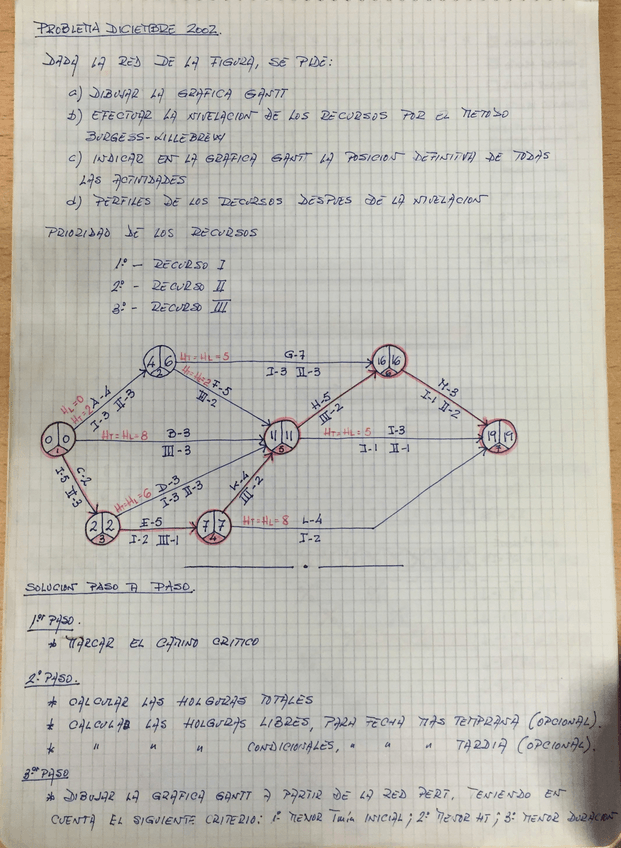 PROBLEMA DICIEMBRE 2002.
DADA LA RED DE LA FIGURA, SE PIDE:
a) DIBUJAR LA GRAFICA GANTT
b) EFECTUAR LA NIVELACION DE LOS RECURSOS POR EL METODO
BURGESS-KILLEBREW
c) INDICAR EN LA GRAFICA GANTT LA POSICION DEFINITIVA DE TODAS
LAS ACTIVIDADES
d) PERFILES DE LOS RECURSOS DESPUES DE LA NIVELACION
PRIORIDAD DE LOS RECURSOS
1º - RECURSO I
2º - RECURSO II
3º - RECURSO III
4 6 2
HT=HL=5
G-7
I-3 II-3
16 16 6
HL=0
HT=2
A-4
I-3 II-3
HT=HL=2
F-5
III-2
H-5
III-2
M-3
I-1 II-2
0 0 1
HT=HL=8
B-3
III-3
11 11 5
HT=HL=5
I-3
I-1 II-1
19 19 7
C-2
I-5 II-3
HT=HL=6
D-3
I-3 II-3
K-4
III-2
2 2 3
E-5
I-2 III-1
7 7 4
HT=HL=8
L-4
I-2
SOLUCION PASO A PASO.
1er PASO.
* MARCAR EL CAMINO CRITICO
2º PASO.
* CALCULAR LAS HOLGURAS TOTALES
* CALCULAR LAS HOLGURAS LIBRES, PARA FECHA MAS TEMPRANA (OPCIONAL).
* " " " CONDICIONALES, " " " TARDIA (OPCIONAL).
3er PASO
* DIBUJAR LA GRAFICA GANTT A PARTIR DE LA RED PERT, TENIENDO EN
CUENTA EL SIGUIENTE CRITERIO: 1º MENOR Tmin INICIAL; 2º MENOR HT; 3º MENOR DURACION